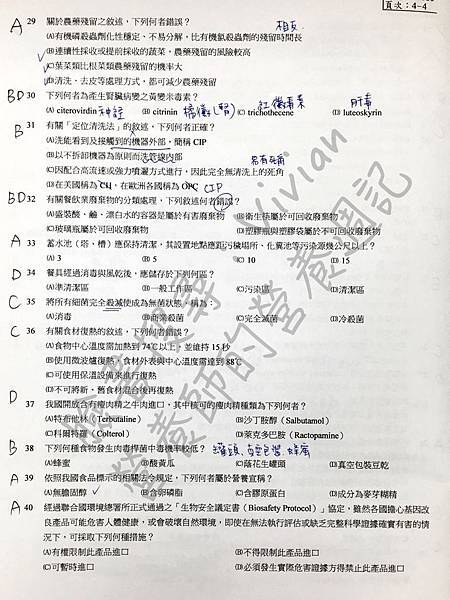 頁次：4-4
相反
A 29 關於農藥殘留之敘述，下列何者錯誤？
(A)有機磷殺蟲劑化性穩定、不易分解，比有機氯殺蟲劑的殘留時間長
(B)連續性採收或提前採收的蔬菜，農藥殘留的風險較高
(C)葉菜類比根菜類農藥殘留的機率大
(D)清洗、去皮等處理方式，都可減少農藥殘留
BD 30 下列何者為產生腎臟病變之黃變米毒素？
(A) citerovirdin 神經 (B) citrinin 橘黴(腎) (C) trichothecene 紅黴毒素 (D) luteoskyrin 肝毒
B 31 有關「定位清洗法」的敘述，下列何者正確？
(A)洗能看到及接觸到的機器外部，簡稱 CIP
(B)以不拆卸機器為原則而洗管線內部
(C)因配合高流速或強力噴灑方式進行，因此完全無清洗上的死角 易有死角
(D)在美國稱為 CII，在歐洲各國稱為 OPC CIP
BD 32 有關餐飲業廢棄物的分類處理，下列敘述何者錯誤？
(A)盛裝酸、鹼、漂白水的容器是屬於有害廢棄物 (B)衛生筷屬於可回收廢棄物
(C)玻璃瓶屬於可回收廢棄物 (D)塑膠瓶與塑膠袋屬於不可回收廢棄物
A 33 蓄水池（塔、槽）應保持清潔，其設置地點應距污穢場所、化糞池等污染源幾公尺以上？
(A) 3 (B) 5 (C) 10 (D) 15
D 34 餐具經過消毒與風乾後，應儲放於下列何區？
(A)準清潔區 (B)一般工作區 (C)污染區 (D)清潔區
C 35 將所有細菌完全殺滅使成為無菌狀態，稱為：
(A)消毒 (B)商業殺菌 (C)完全滅菌 (D)冷殺菌
C 36 有關食材復熱的敘述，下列何者錯誤？
(A)食物中心溫度需加熱到 74℃以上，並維持 15 秒
(B)使用微波爐復熱，食材外表與中心溫度需達到 88℃
(C)可使用保溫設備來進行復熱
(D)不可將新、舊食材混合後再復熱
D 37 我國開放含有瘦肉精之牛肉進口，其中核可的瘦肉精種類為下列何者？
(A)特布他林（Terbutaline） (B)沙丁胺醇（Salbutamol）
(C)科爾特羅（Colterol） (D)萊克多巴胺（Ractopamine）
B 38 下列何種食物發生肉毒桿菌中毒機率較低？ 罐頭、真空包裝、蜂蜜
(A)蜂蜜 (B)酸黃瓜 (C)落花生罐頭 (D)真空包裝豆乾
A 39 依照我國食品標示的相關法令規定，下列何者屬於營養宣稱？
(A)無膽固醇 (B)含卵磷脂 (C)含膠原蛋白 (D)成分為麥芽糊精
A 40 經過聯合國環境總署所正式通過之「生物安全議定書（Biosafety Protocol）」協定，雖然各國擔心基因改
良產品可能危害人體健康，或會破壞自然環境，即使在無法執行評估或缺乏完整科學證據確實有害的情
況下，可採取下列何種措施？
(A)有權限制此產品進口 (B)不得限制此產品進口
(C)可暫時進口 (D)必須發生實際危害證據方得禁止此產品進口
Vivian
營養師的營養週記